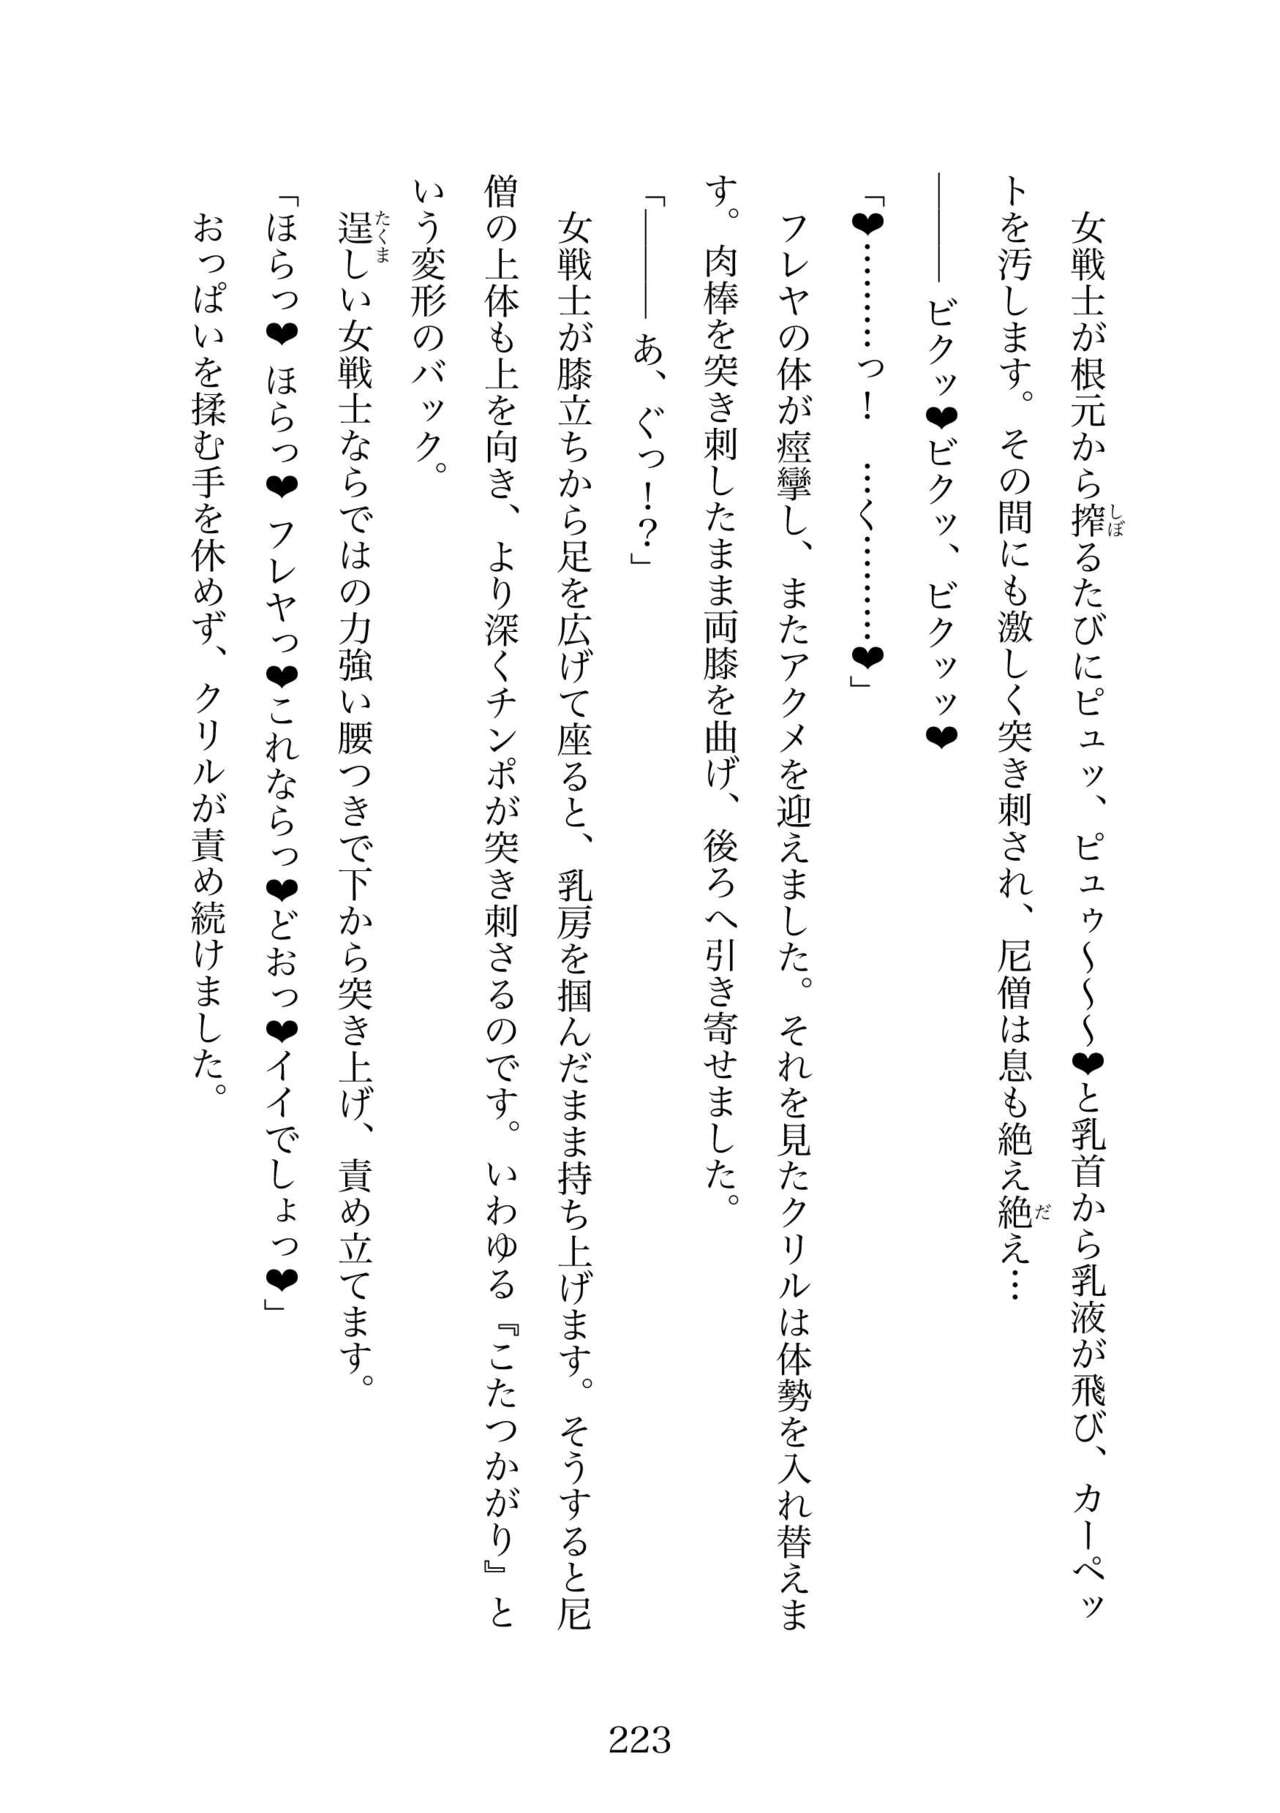 女戦士が根元から搾るたびにピュッ、ピュゥ～～～❤と乳首から乳液が飛び、カーペッ
トを汚します。その間にも激しく突き刺され、尼僧は息も絶え絶え…
───ビクッ❤ビクッ、ビクッッ❤
「❤………っ！　…く………❤」
フレヤの体が痙攣し、またアクメを迎えました。それを見たクリルは体勢を入れ替えま
す。肉棒を突き刺したまま両膝を曲げ、後ろへ引き寄せました。
「───あ、ぐっ！？」
女戦士が膝立ちから足を広げて座ると、乳房を掴んだまま持ち上げます。そうすると尼
僧の上体も上を向き、より深くチンポが突き刺さるのです。いわゆる『こたつかがり』と
いう変形のバック。
逞しい女戦士ならではの力強い腰つきで下から突き上げ、責め立てます。
「ほらっ❤ ほらっ❤ フレヤっ❤これならっ❤どおっ❤イイでしょっ❤」
おっぱいを揉む手を休めず、クリルが責め続けました。
223